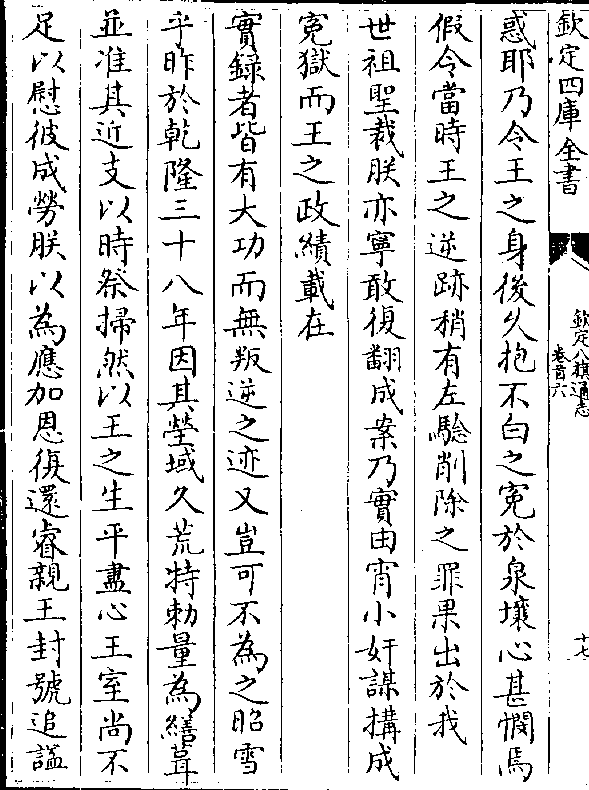 欽定四庫全書
欽定八旗通志
卷首六
十七
惑耶乃令王之身後久抱不白之寃於泉壤心甚憫焉
假令當時王之逆跡稍有左驗削除之罪果出於我
世祖聖裁朕亦寧敢復翻成案乃實由宵小奸謀搆成
寃獄而王之政績載在
實錄者皆有大功而無叛逆之迹又豈可不為之昭雪
乎昨於乾隆三十八年因其塋域久荒特勅量為繕葺
並准其近支以時祭掃然以王之生平盡心王室尚不
足以慰彼成勞朕以為應加恩復還睿親王封號追諡